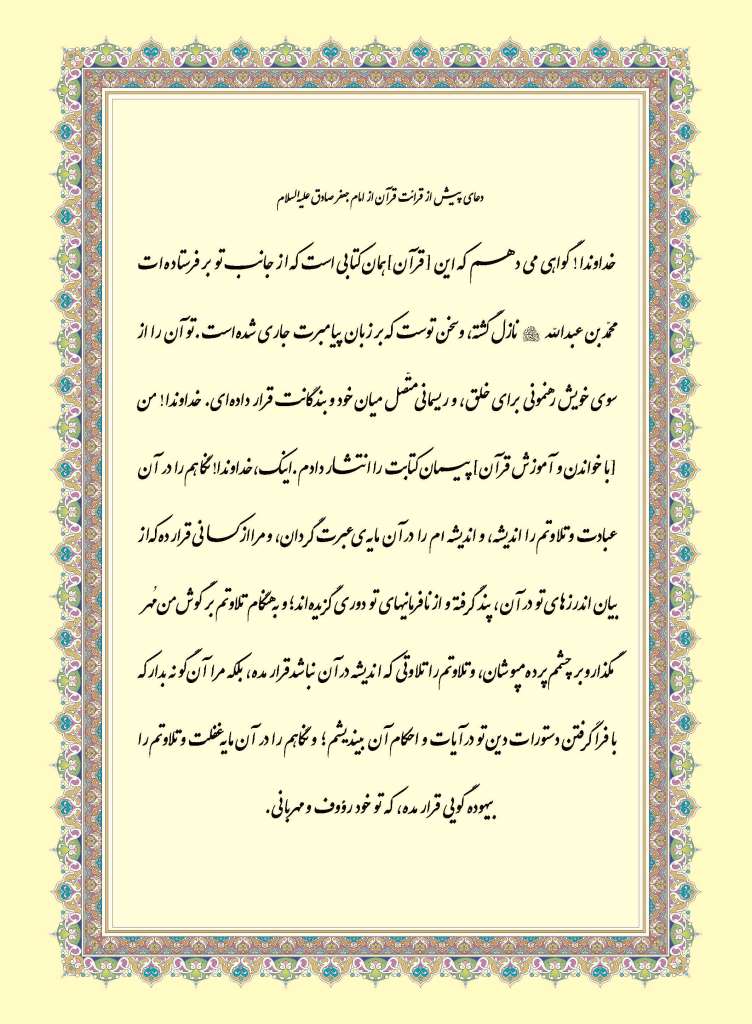 دعای پیش از قرائت قرآن از امام جعفر صادق علیه‌السلام
خداوندا! گواهی می دهم که این [قرآن] همان کتابی است که از جانب تو بر فرستاده ات
محمّد بن عبدالله ﷺ نازل گشته، و سخن توست که بر زبان پیامبرت جاری شده است. تو آن را از
سوی خویش رهنمونی برای خلق، و ریسمانی متّصل میان خود و بندگانت قرار داده‌ای. خداوندا! من
[با خواندن و آموزش قرآن] پیمان کتابت را انتشار دادم. اینک، خداوندا! نگاهم را در آن
عبادت و تلاوتم را اندیشه، و اندیشه ام را در آن مایه‌ی عبرت گردان، و مرا از کسانی قرار ده که از
بیان اندرزهای تو در آن، پند گرفته و از نافرمانیهای تو دوری گزیده‌اند؛ و به هنگام تلاوتم بر گوش من مُهر
مگذار و بر چشم پرده مپوشان، و تلاوتم را تلاوتی که اندیشه در آن نباشد قرار مده، بلکه مرا آن گونه بدار که
با فرا گرفتن دستورات دین تو در آیات و احکام آن بیندیشم؛ و نگاهم را در آن مایه غفلت و تلاوتم را
بیهوده گویی قرار مده، که تو خود رؤوف و مهربانی.